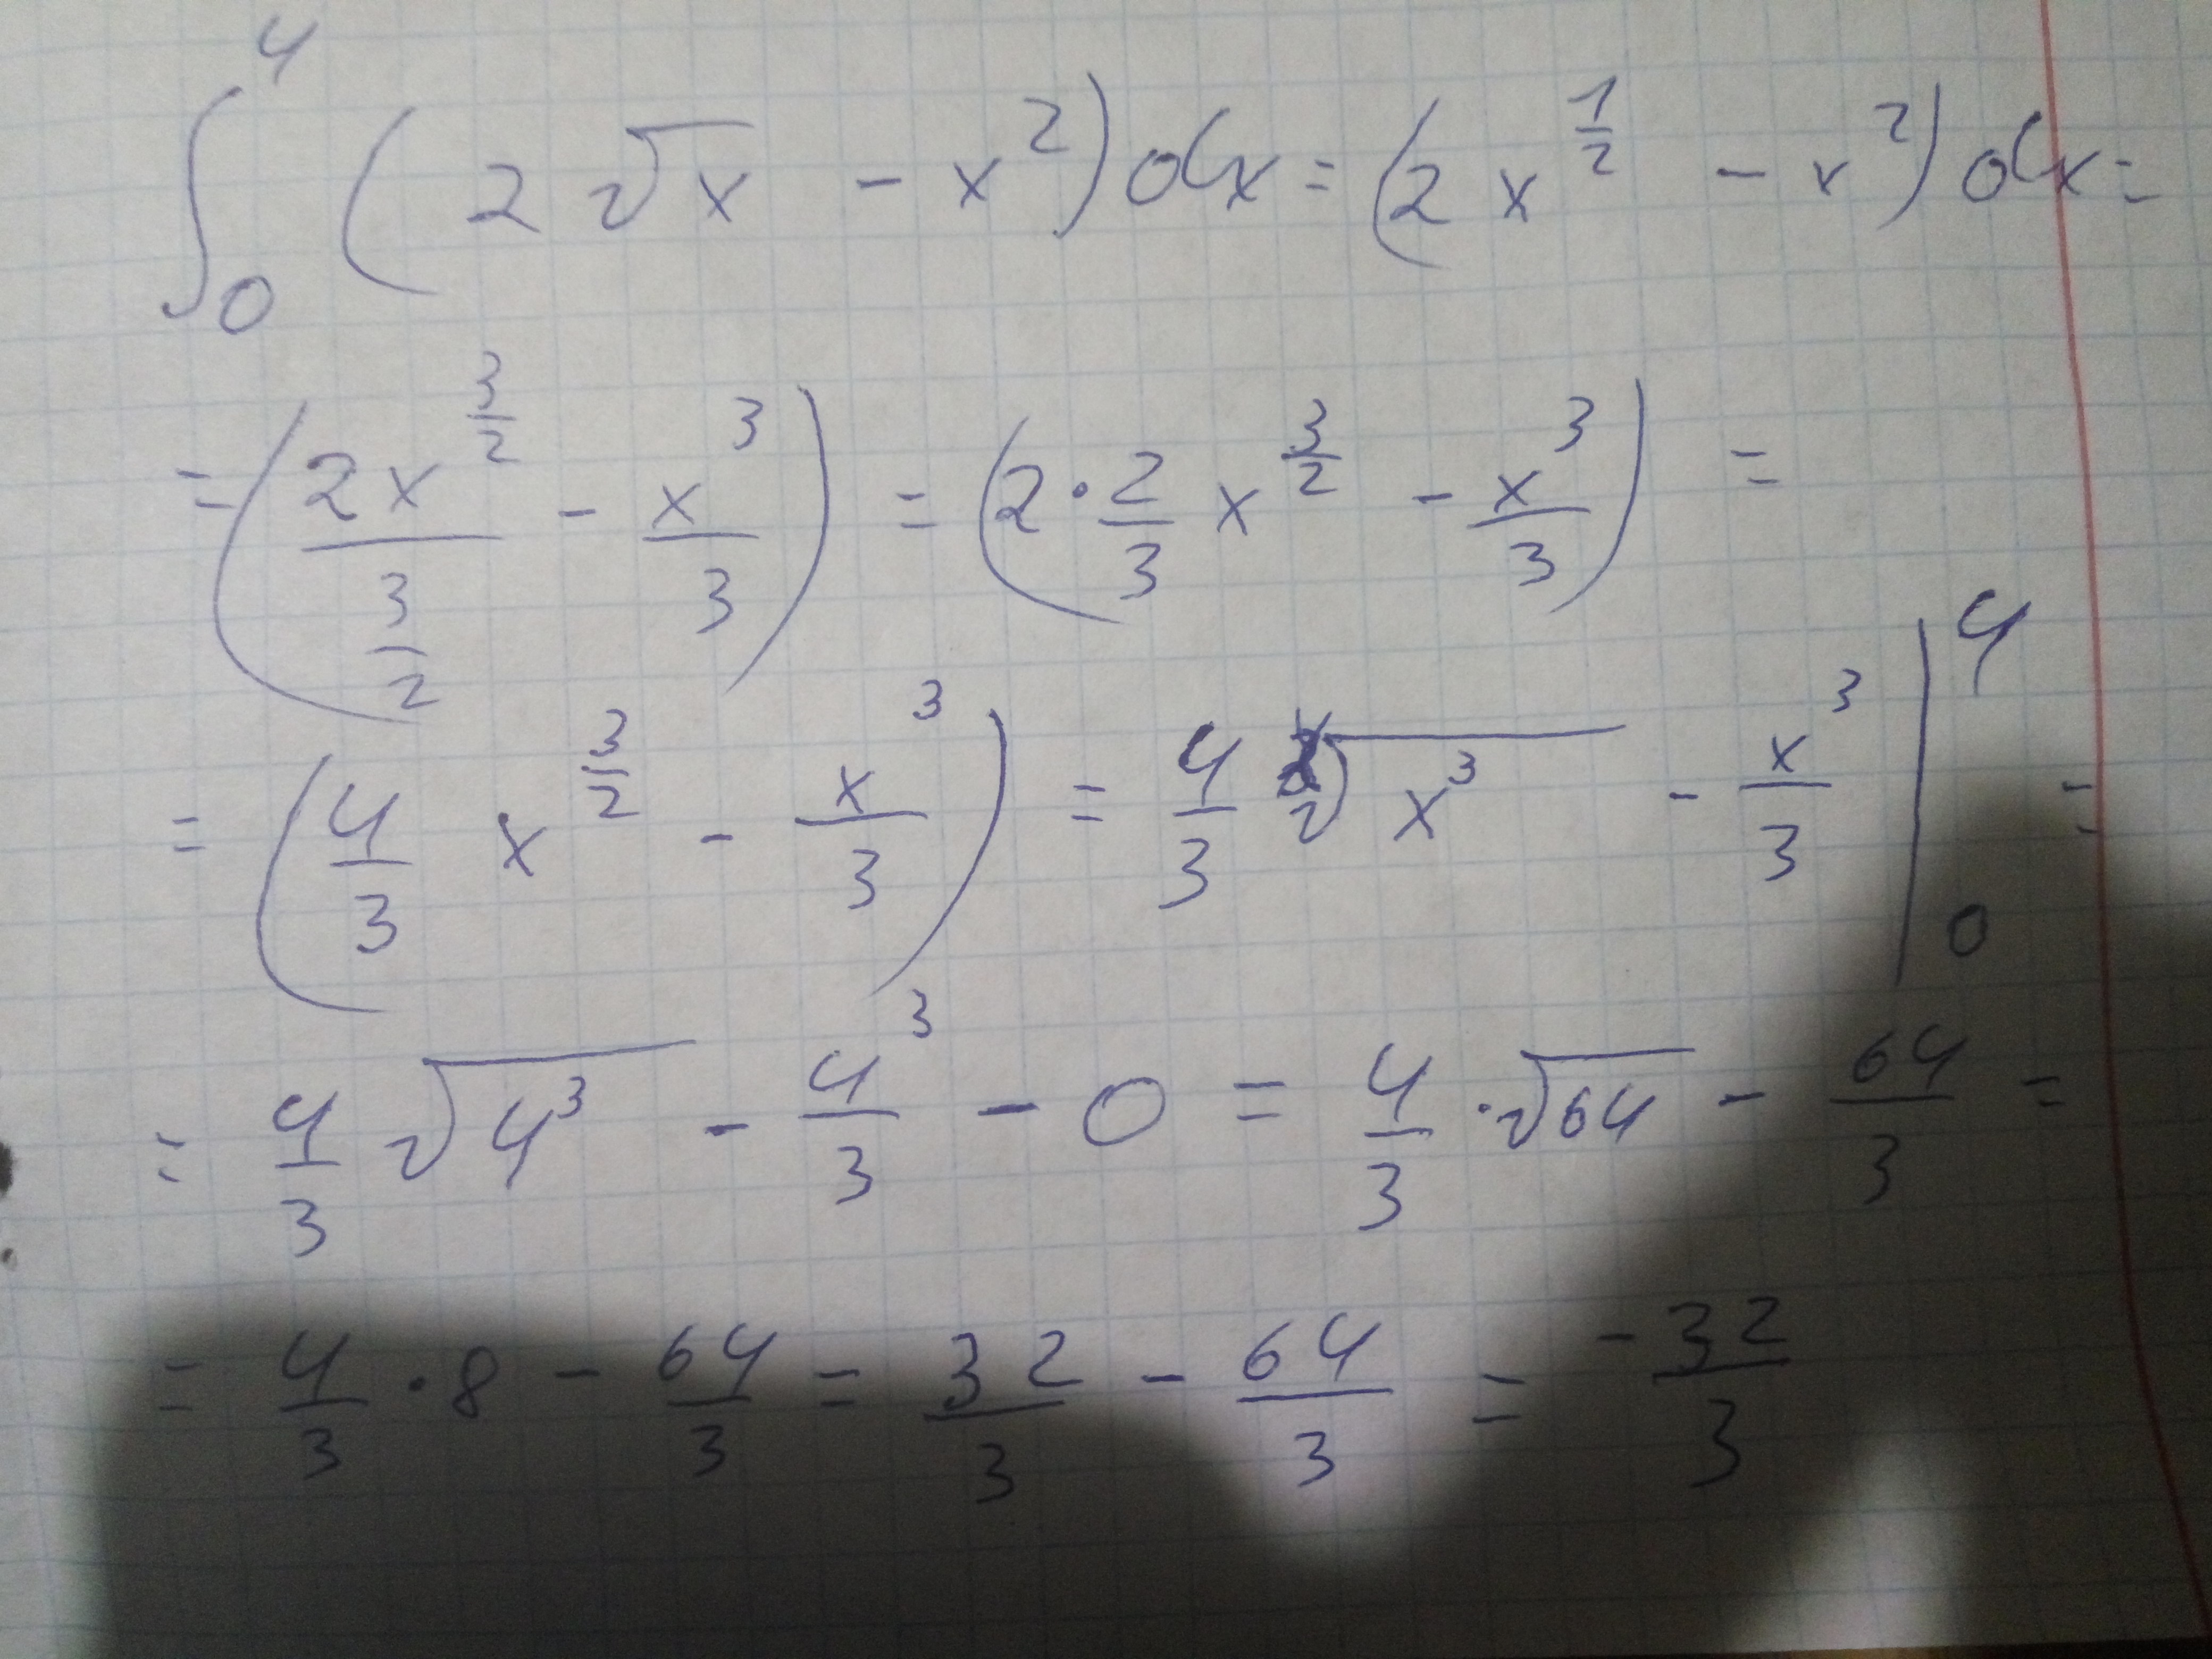 ∫₀⁴ (2√x - x²)dx = (2x^(1/2) - x²)dx =
= (2x^(3/2)/(3/2) - x³/3) = (2·2/3 x^(3/2) - x³/3) =
= (4/3 x^(3/2) - x³/3) = 4/3 √(x³) - x³/3 |₀⁴ =
= 4/3 √(4³) - 4³/3 - 0 = 4/3 · √64 - 64/3 =
= 4/3 · 8 - 64/3 = 32/3 - 64/3 = -32/3